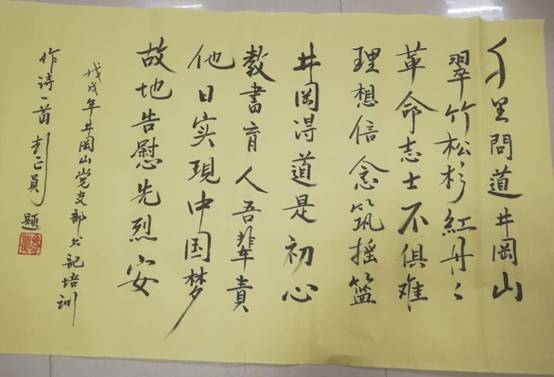 千里問道井岡山
翠竹松杉紅丹丹
革命志士不俱难
理想信念筑摇篮
井岡得道是初心
教書育人吾辈責
他日实現中国梦
故地告慰先烈安
戊戌年井岡山党支部书記培训
作诗一首 題